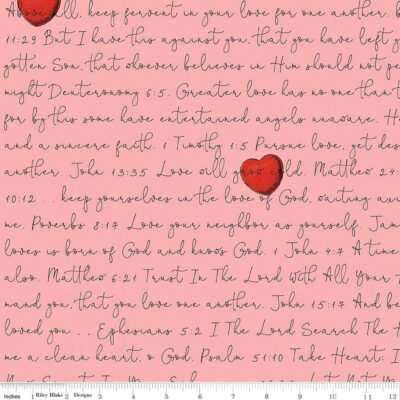 Above All, keep fervent in your love for one another. b
11:29 But I have this against you, that you have left y
gotten Son, that whoever believes in Him should not pe
might Deuteronomy 6:5. Greater love has no one than t
for by this some have entertained angels unaware. H
and a sincere faith. 1 Timothy 1:5 Pursue love, yet des
another. John 13:35 Love will grow cold. Matthew 24:
10:12 .. keep yourselves in the love of God, waiting anx
me. Proverbs 8:17 Love your neighbor as yourself. Jam
loves is born of God and knows God. 1 John 4:7 A time
also. Matthew 6:21 Trust In The Lord With All Your
mand you, that you love one another. John 15:17 And be
loved you .. Ephesians 5:2 I The Lord Search The H
me a clean heart, o God. Psalm 51:10 Take Heart: I
inches 1 Riley Blake 2 Designs 3 4 5 6 7 8 9 10 11 12